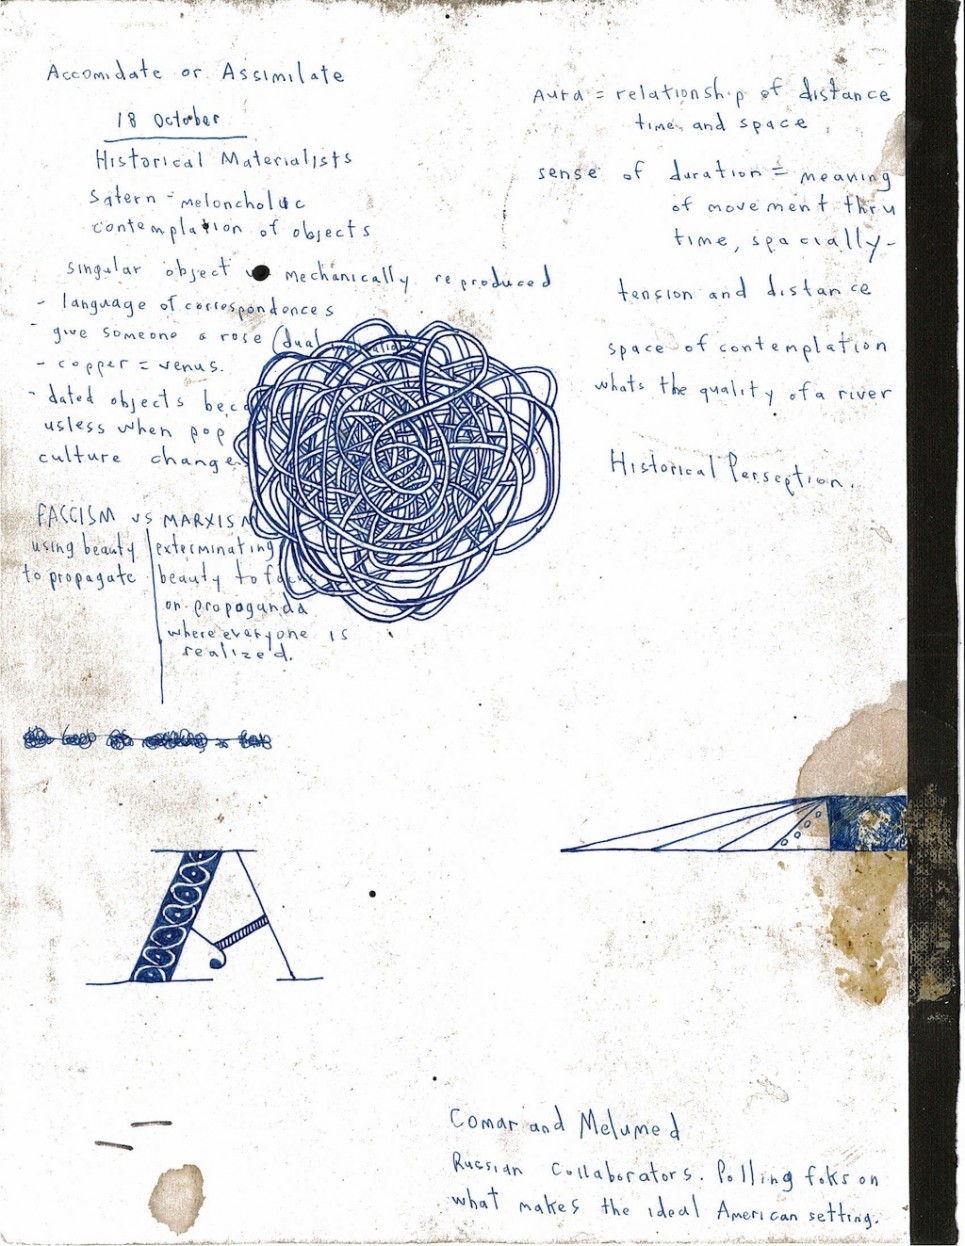 Accomidate or Assimilate
18 October
Historical Materialists
Satern - meloncholic
contemplation of objects
singular object mechanically reproduced
- language of correspondences
- give someone a rose (dual
- copper = venus.
- dated objects bec
usless when pop
culture change
FACCISM vs MARXISM
using beauty
to propagate
exterminating
beauty to focus
on propoganda
where everyone is
realized.
A
Aura = relationship of distance
time, and space
sense of duration = meaning
of movement thru
time, spacially-
tension and distance
space of contemplation
whats the quality of a river
Historical Perseption.
Comar and Melumed
Russian Collaborators. Polling foks on
what makes the ideal American setting.